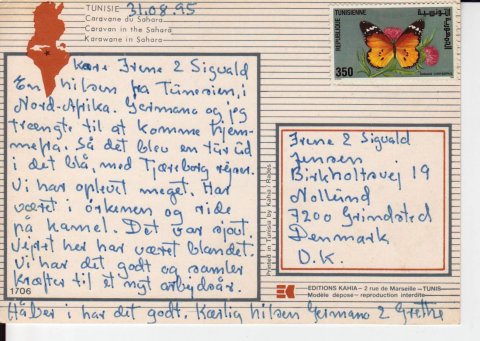 TUNISIE 31.08.95
Caravane du Sahara
Caravan in the Sahara
Karawane in Sahara
Kære Irene & Sigvald
En hilsen fra Tunesien, i
Nord-Afrika. Germano og jeg
trængte til at komme hjem-
mefra. Så det blev en tur ud
i det blå, med Tjæreborg rejser.
Vi har oplevet meget. Har
været i ørkenen og ride
på kamel. Det var sjovt.
Vejret her har været blandet.
Vi har det godt og samler
kræfter til et nyt arbejdsår.
1706
Håber i har det godt. Kærlig hilsen Germano & Grethe
Printed in Tunisia by Kahia /
REPUBLIQUE TUNISIENNE
350
Irene & Sigvald
Jensen
Birkholtsvej 19
Nollund
7200 Grindsted
Denmark
D.K.
EDITIONS KAHIA – 2 rue de Marseille – TUNIS
Modèle déposé – reproduction interdite